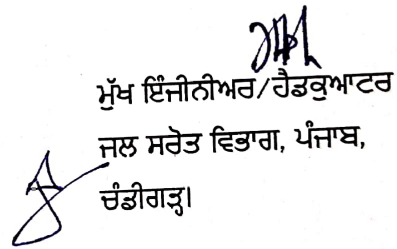 ਮੁੱਖ ਇੰਜੀਨੀਅਰ/ਹੈਡਕੁਆਟਰ
ਜਲ ਸਰੋਤ ਵਿਭਾਗ, ਪੰਜਾਬ,
ਚੰਡੀਗੜ੍ਹ।